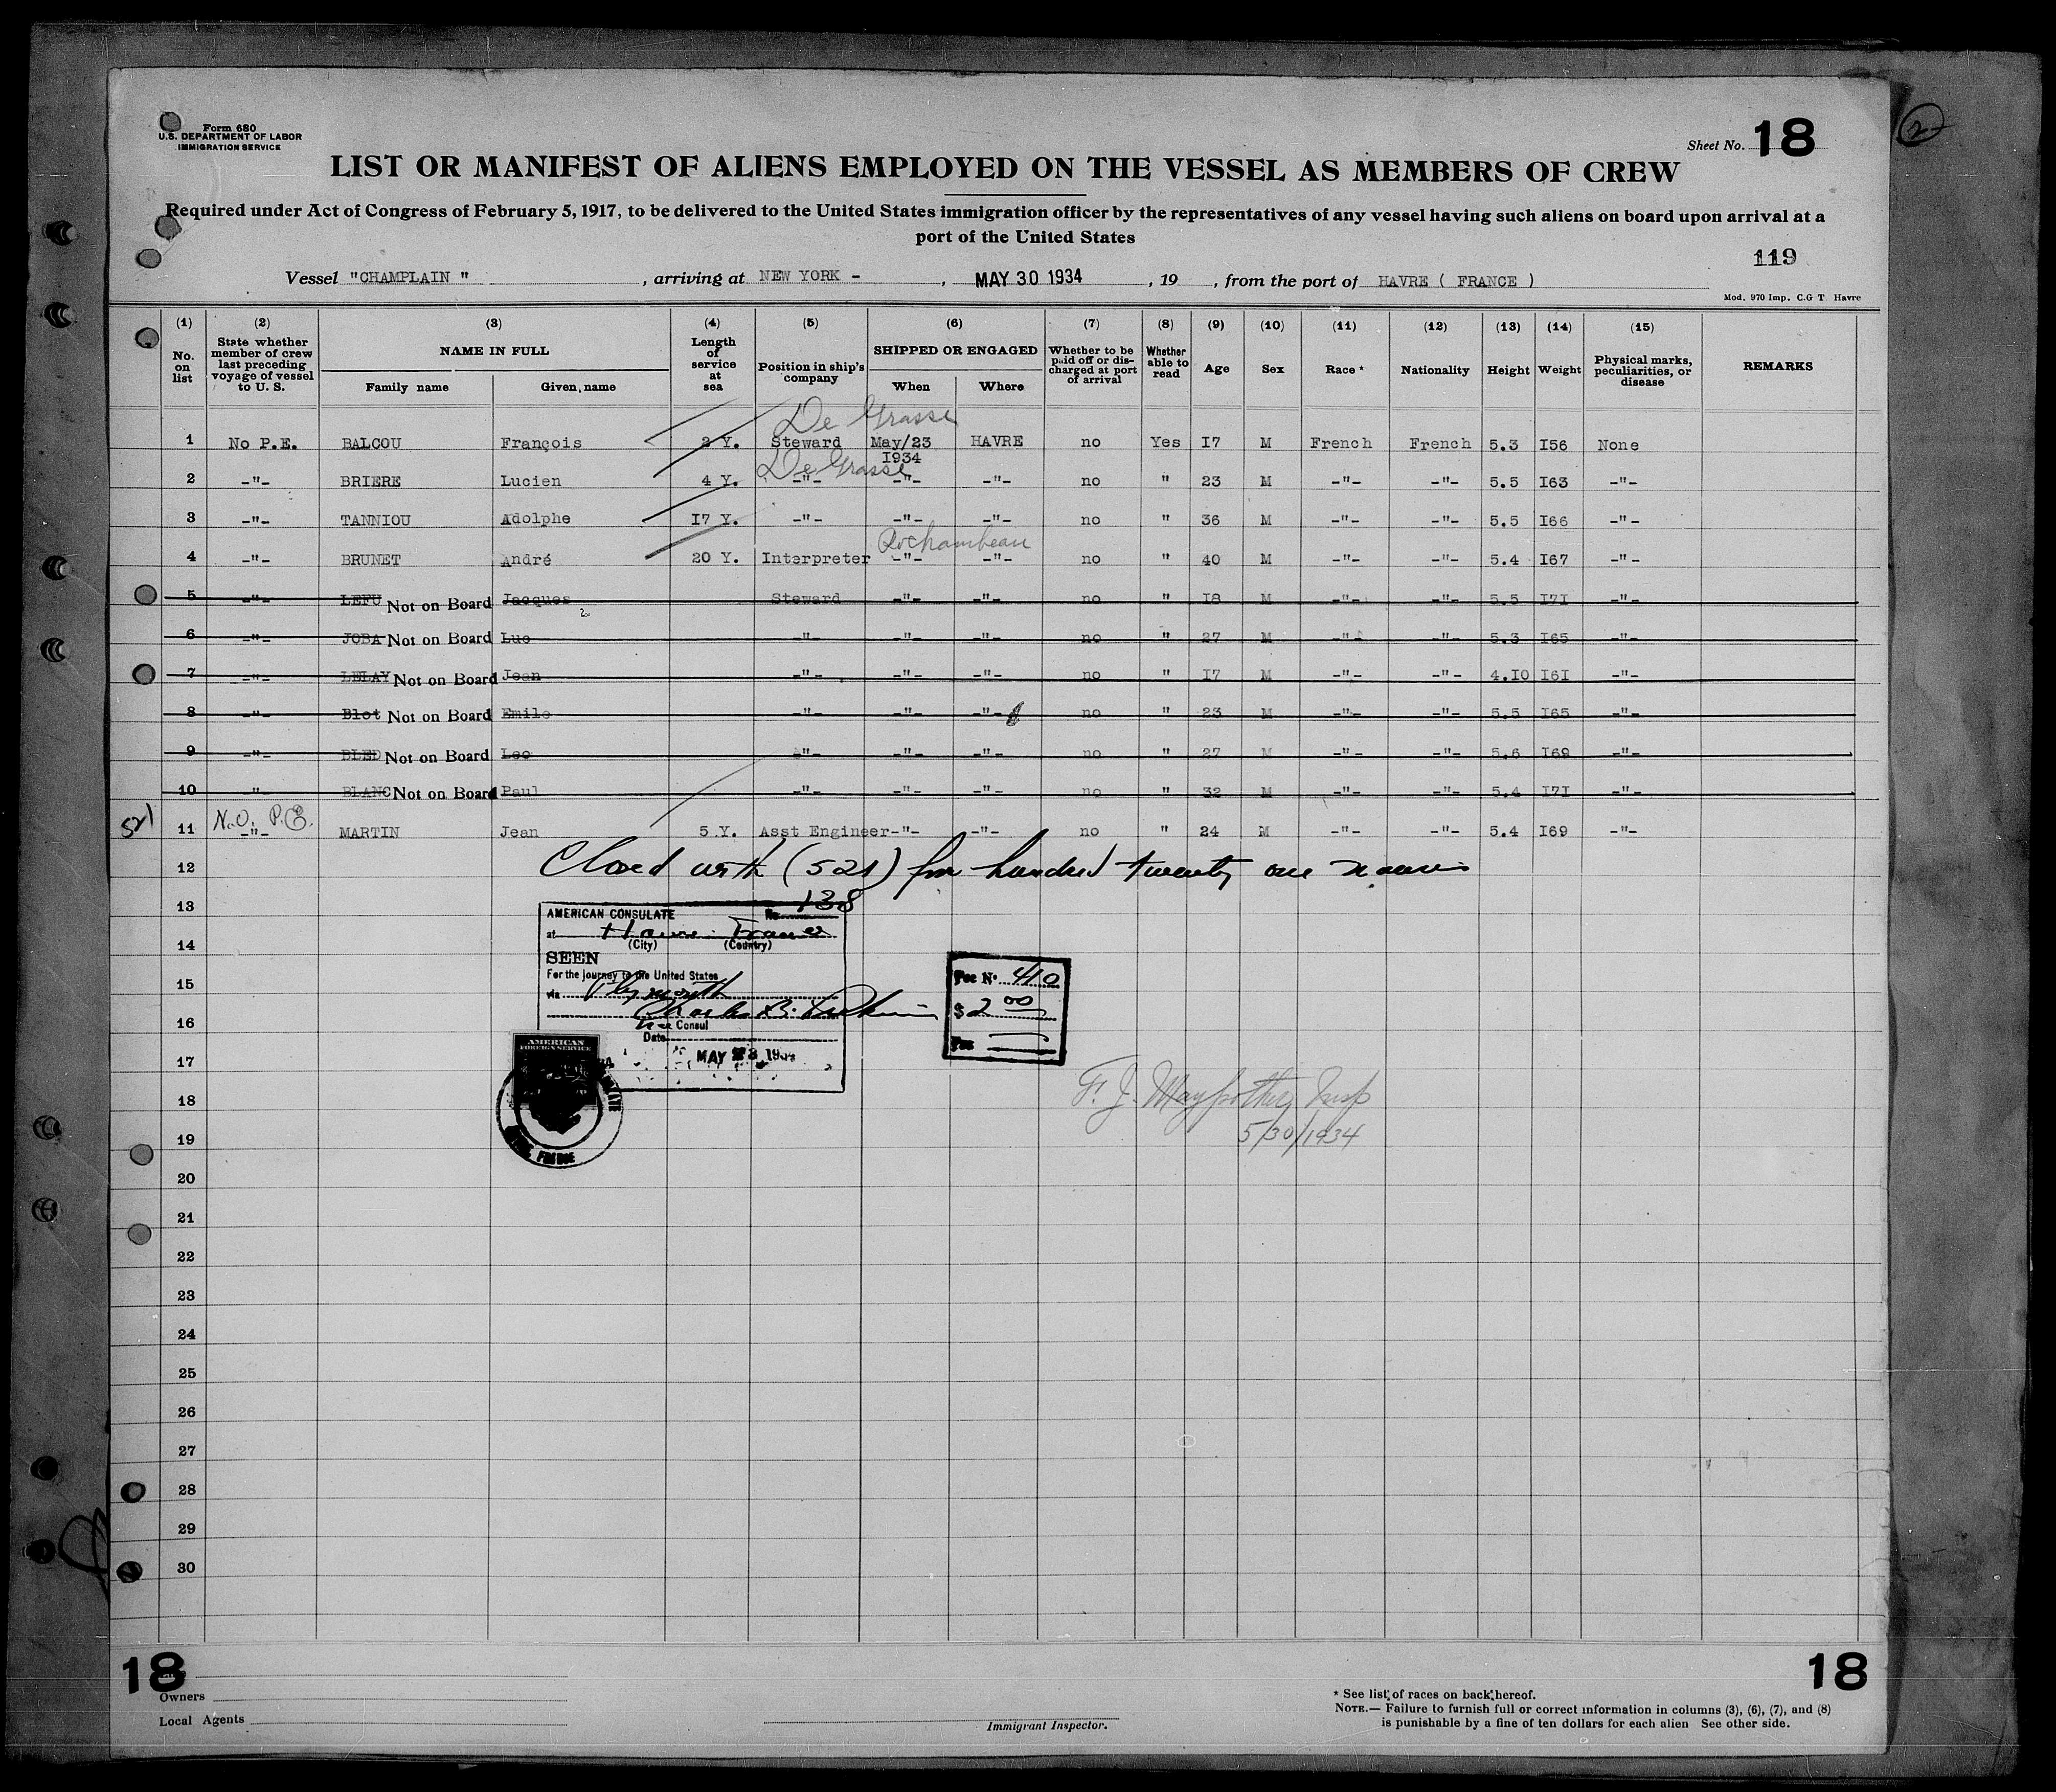 Form 680
U.S. DEPARTMENT OF LABOR
IMMIGRATION SERVICE
Sheet No. 18
2
LIST OR MANIFEST OF ALIENS EMPLOYED ON THE VESSEL AS MEMBERS OF CREW
Required under Act of Congress of February 5, 1917, to be delivered to the United States immigration officer by the representatives of any vessel having such aliens on board upon arrival at a
port of the United States
119
Vessel "CHAMPLAIN " , arriving at NEW YORK - , MAY 30 1934 , 19 , from the port of HAVRE ( FRANCE )
Mod. 970 Imp. C.G T Havre
(1) (2) (3) (4) (5) (6) (7) (8) (9) (10) (11) (12) (13) (14) (15)
No. on list State whether member of crew last preceding voyage of vessel to U. S. NAME IN FULL Family name Given name Length of service at sea Position in ship's company SHIPPED OR ENGAGED When Where Whether to be paid off or discharged at port of arrival Whether able to read Age Sex Race * Nationality Height Weight Physical marks, peculiarities, or disease REMARKS
De Grasse
1 No P.E. BALCOU François 2 Y. Steward May/23 1934 HAVRE no Yes I7 M French French 5.3 I56 None
De Grasse
2 -"- BRIERE Lucien 4 Y. -"- -"- -"- no " 23 M -"- -"- 5.5 I63 -"-
3 -"- TANNIOU Adolphe I7 Y. -"- -"- -"- no " 36 M -"- -"- 5.5 I66 -"-
Rochambeau
4 -"- BRUNET André 20 Y. Interpreter -"- -"- no " 40 M -"- -"- 5.4 I67 -"-
5 -"- LEFU Not on Board Jacques Steward -"- -"- no " I8 M -"- -"- 5.5 I7I -"-
6 -"- JOBA Not on Board Luc -"- -"- -"- no " 27 M -"- -"- 5.3 I65 -"-
7 -"- LELAY Not on Board Jean -"- -"- -"- no " I7 M -"- -"- 4.I0 I6I -"-
8 -"- Blot Not on Board Emile -"- -"- -"- no " 23 M -"- -"- 5.5 I65 -"-
9 -"- BLED Not on Board Leo -"- -"- -"- no " 27 M -"- -"- 5.6 I69 -"-
10 -"- BLANC Not on Board Paul -"- -"- -"- no " 32 M -"- -"- 5.4 I7I -"-
N.O. P.E.
521 11 -"- MARTIN Jean 5 Y. Asst Engineer -"- -"- no " 24 M -"- -"- 5.4 I69 -"-
12 Closed with (521) five hundred twenty one names
13
14
15
16
17
18
19
20
21
22
23
24
25
26
27
28
29
30
AMERICAN CONSULATE No. 138
at Havre France
(City) (Country)
SEEN
For the journey to the United States
via Plymouth
Charles B.
Vice Consul
Date MAY 23 1934
AMERICAN
FOREIGN SERVICE
FRANCE
Fee No. 410
$ 2 00
F. J. Insp
5/30/1934
18
18
Owners
Local Agents
Immigrant Inspector.
* See list of races on back hereof.
NOTE.— Failure to furnish full or correct information in columns (3), (6), (7), and (8)
is punishable by a fine of ten dollars for each alien See other side.